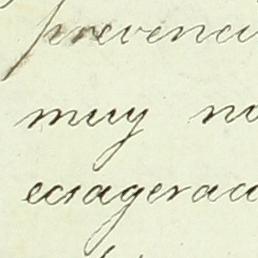 prevenci
muy no
ecsagerac